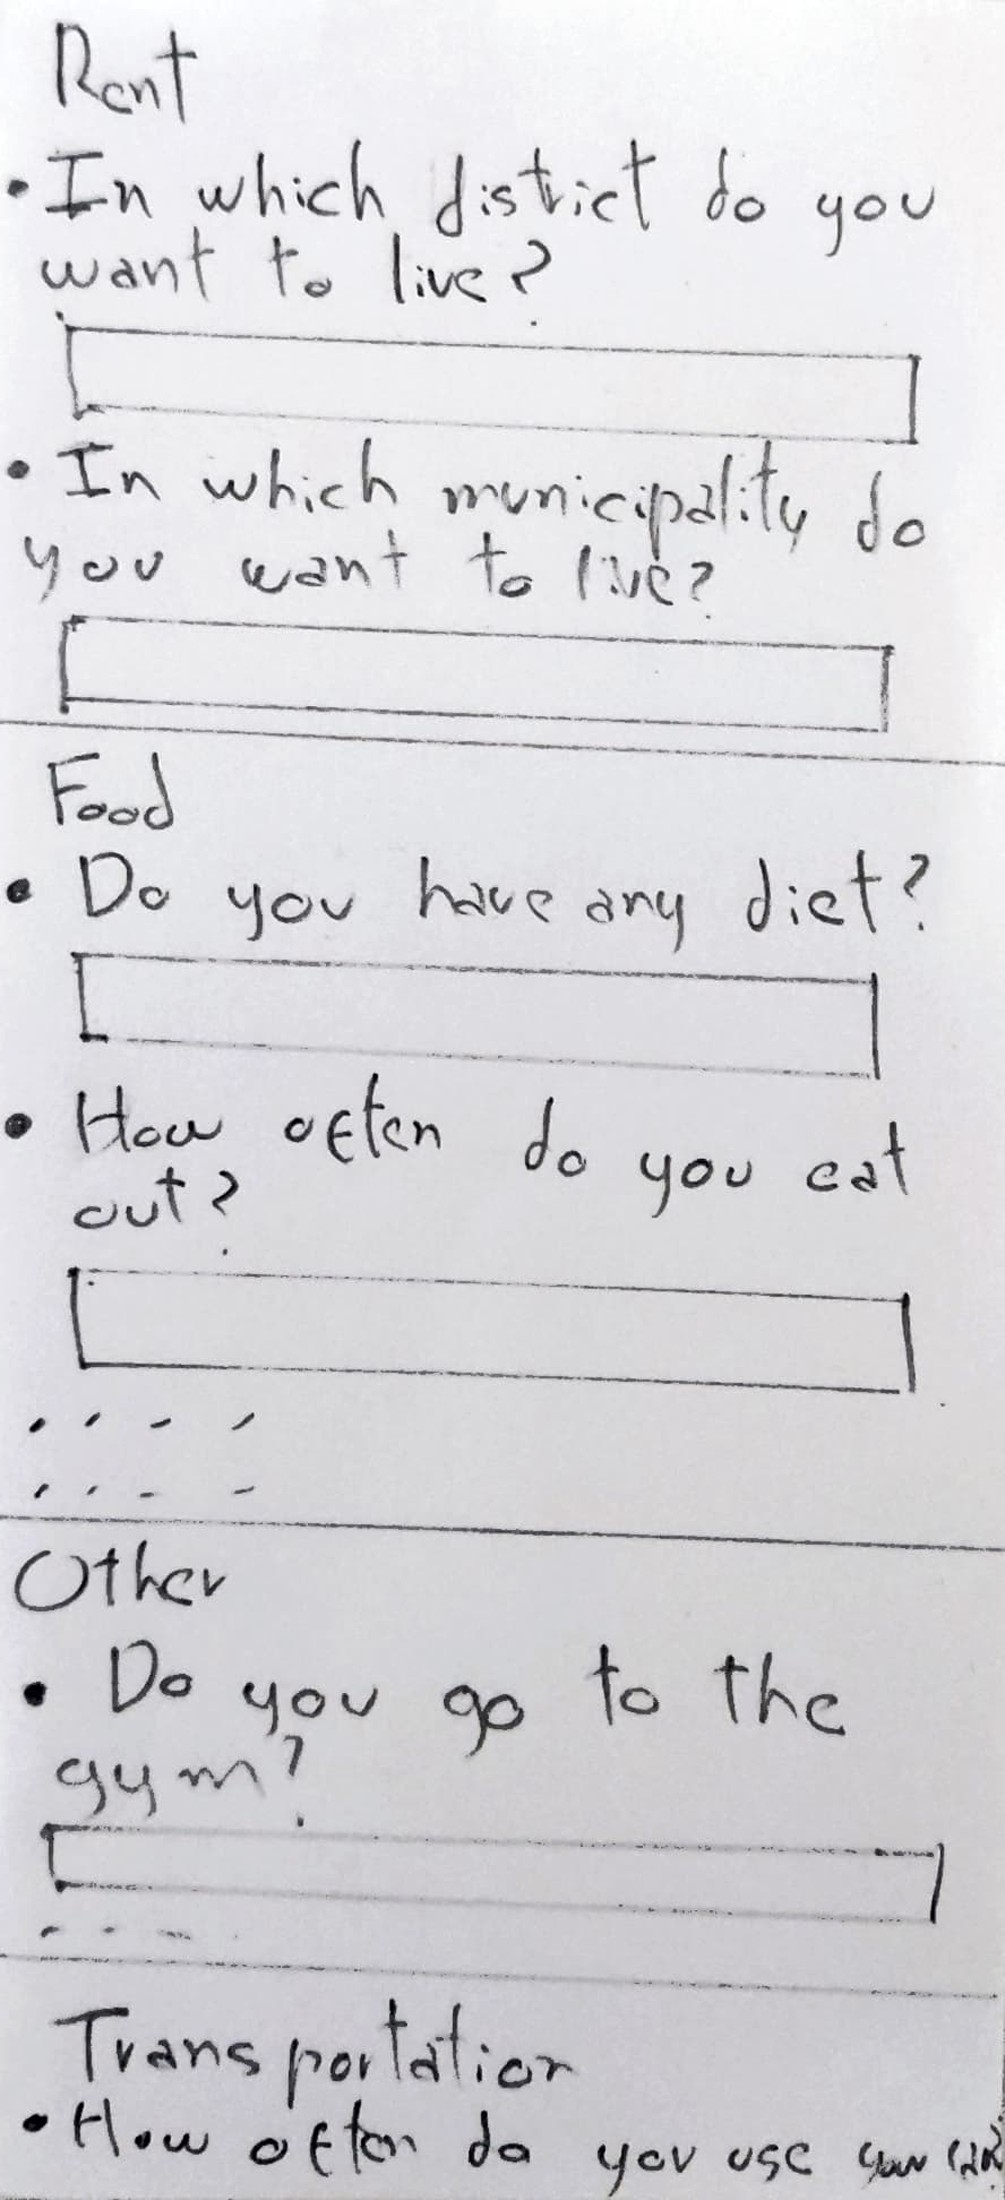 Rent
• In which district do you
want to live?
• In which municipality do
you want to live?
Food
• Do you have any diet?
• How often do you eat
out?
Other
• Do you go to the
gym?
Transportation
• How often do you use your car?